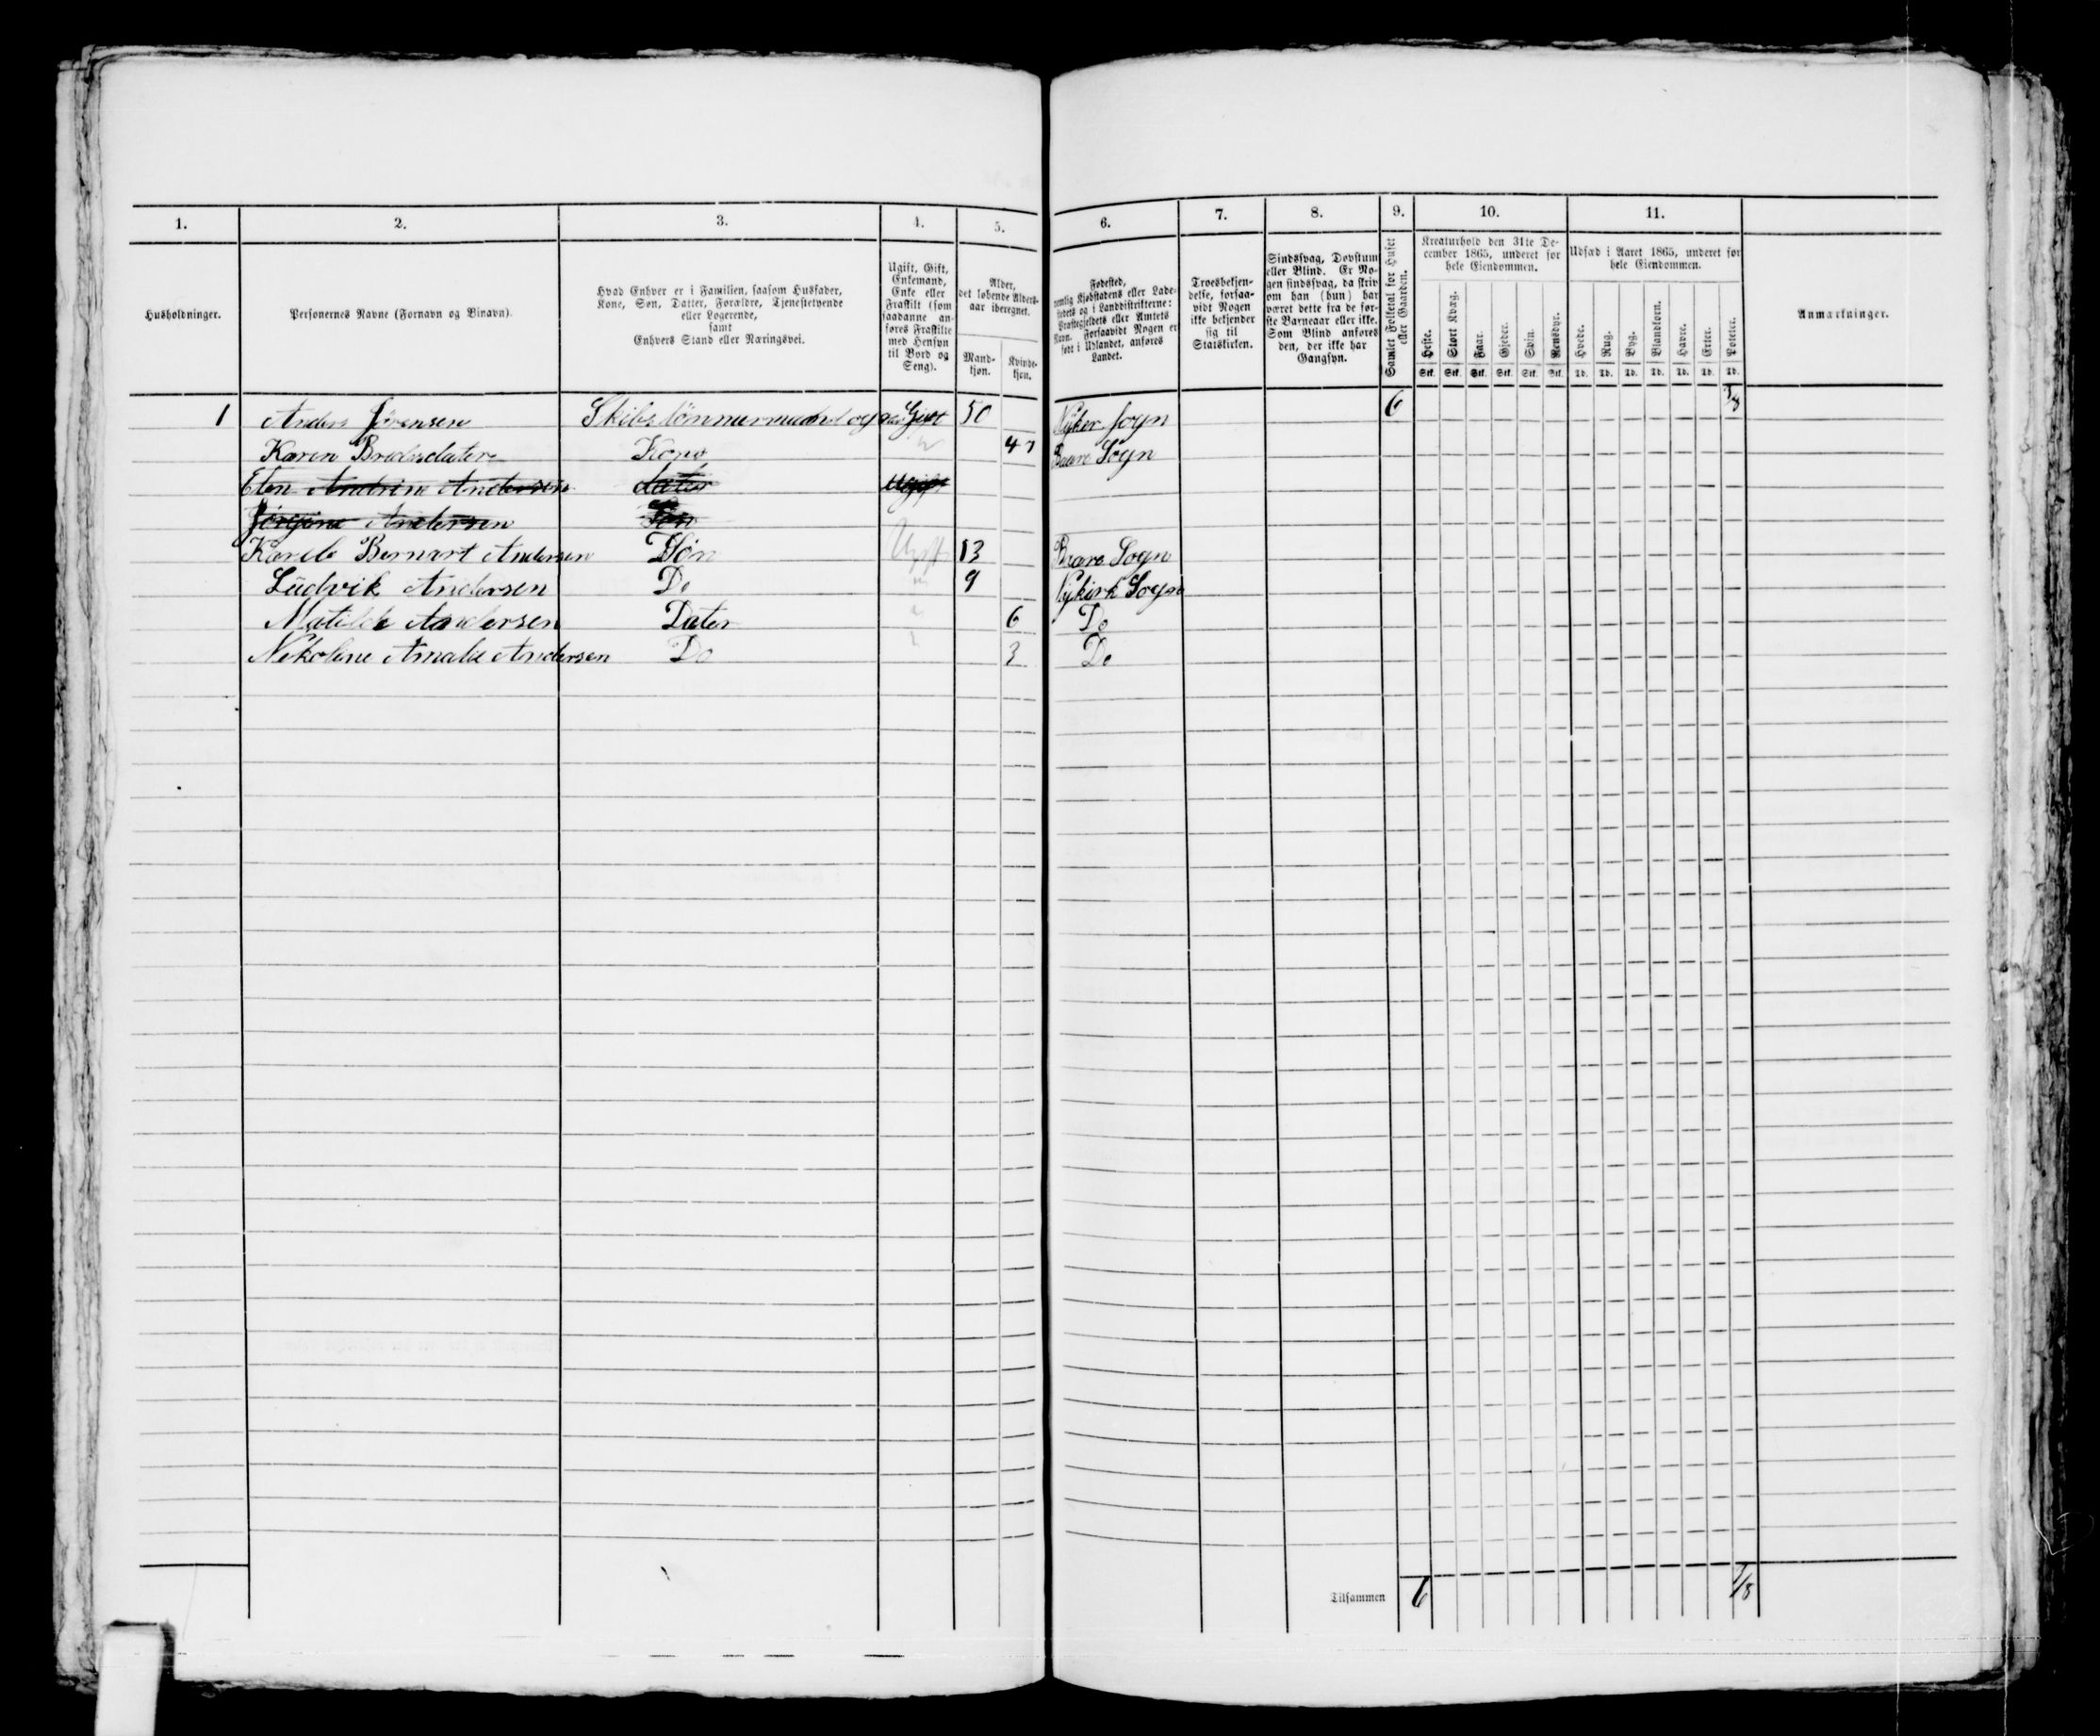 1. 2. 3. 4. 5. 6. 7. 8. 9. 10. 11.
Husholdninger.
Personernes Navne (Fornavn og Binavn).
Hvad Enhver er i Familien, saasom Husfader,
Kone, Søn, Datter, Forældre, Tjenestetyende
eller Logerende,
samt
Enhvers Stand eller Næringsvei.
Ugift, Gift,
Enkemand,
Enke eller
Fraskilt (som
saadanne an-
føres Fraskilte
med Hensyn
til Bord og
Seng).
Alder,
det løbende Alders-
aar iberegnet.
Mand-
kjøn.
Kvinde-
kjøn.
Fødested,
nemlig Kjøbstadens eller Lade-
stedets og i Landdistrikterne:
Præstegjeldets eller Amtets
Navn. Forsaavidt Nogen er
født i Udlandet, anføres
Landet.
Troesbekjen-
delse, forsaa-
vidt Nogen
ikke bekjender
sig til
Statskirken.
Sindssvag, Døvstum
eller Blind. Er No-
gen sindssvag, da skriv
om han (hun) har
været dette fra de før-
ste Barneaar eller ikke.
Som Blind anføres
den, der ikke har
Gangsyn.
Samlet Folketal for Huset
eller Gaarden.
Kreaturhold den 31te De-
cember 1865, underet for
hele Eiendommen.
Heste. Stort Kvæg. Faar. Gjeder. Svin. Rensdyr.
Stk. Stk. Stk. Stk. Stk. Stk.
Udsæd i Aaret 1865, underet for
hele Eiendommen.
Hvede. Rug. Byg. Blandkorn. Havre. Erter. Poteter.
Td. Td. Td. Td. Td. Td. Td.
Anmærkninger.
1 Anders Jørensen Skibstömmermand og Givt 50 Nyker Sogn 6 1/8
Karen Bredesdater Kone 47 Baare Sogn
Elen Andrine Andersen dater Ugift
Jörgine Andersen
Karele Bernart Andersen Sön Ugift 13 Baare Sogn
Ludvik Andersen Do 9 Nykirk Sogn
Matilde Andersen Dater 6 Do
Nekoline Amalie Andersen Do 3 Do
Tilsammen 6 1/8